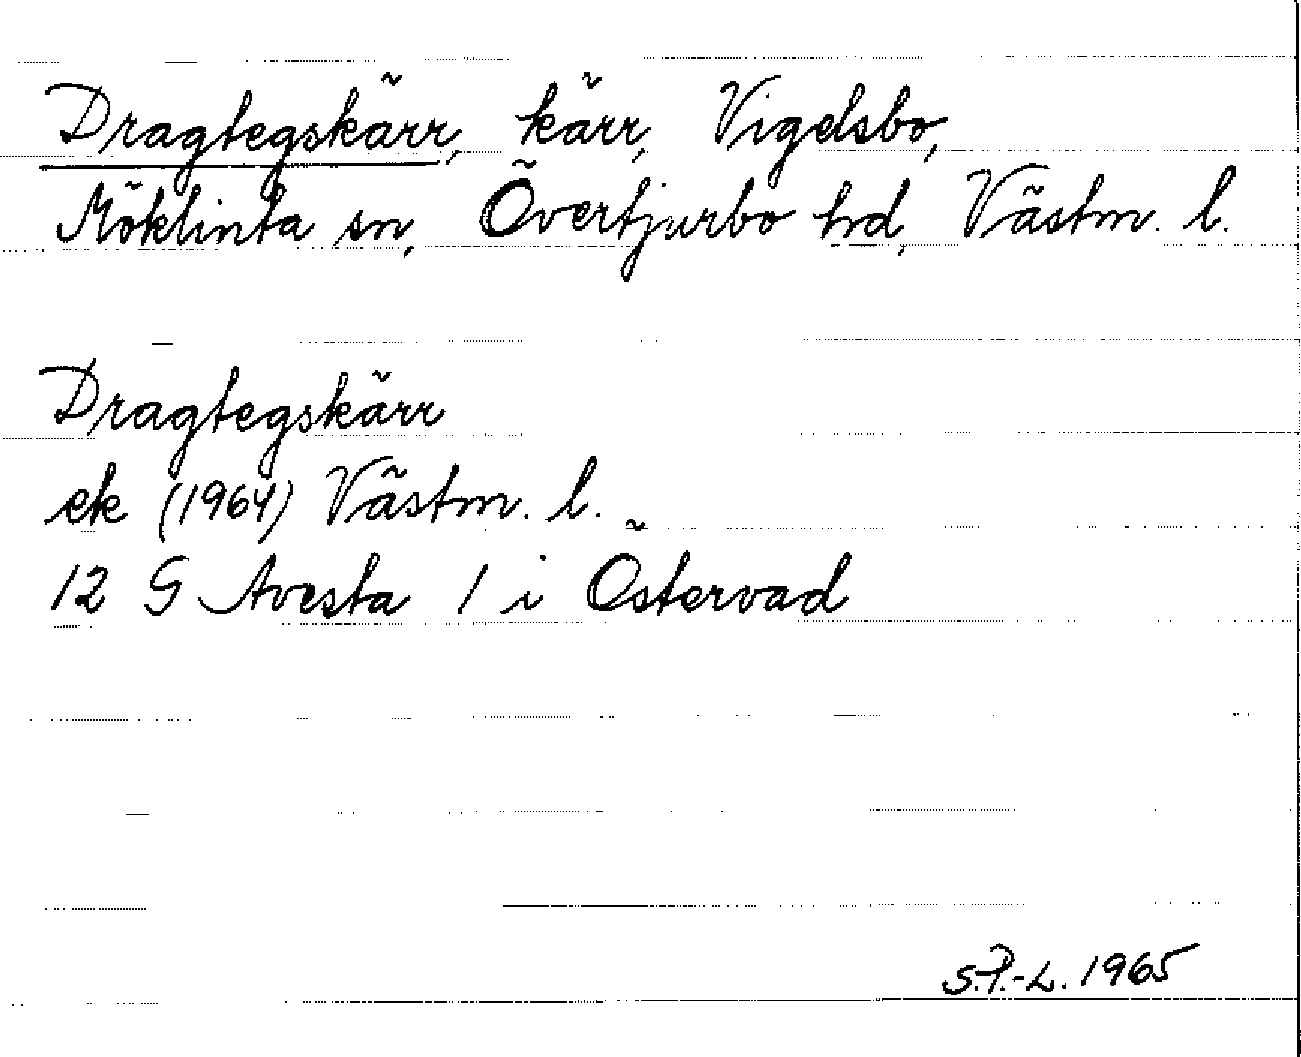 Dragtegskärr, kärr, Vigelsbo,
Möklinta sn, Övertjurbo hd, Västm. l.
Dragtegskärr
ek (1964) Västm. l.
12 G Avesta 1 i Östervad
S.P.-L. 1965